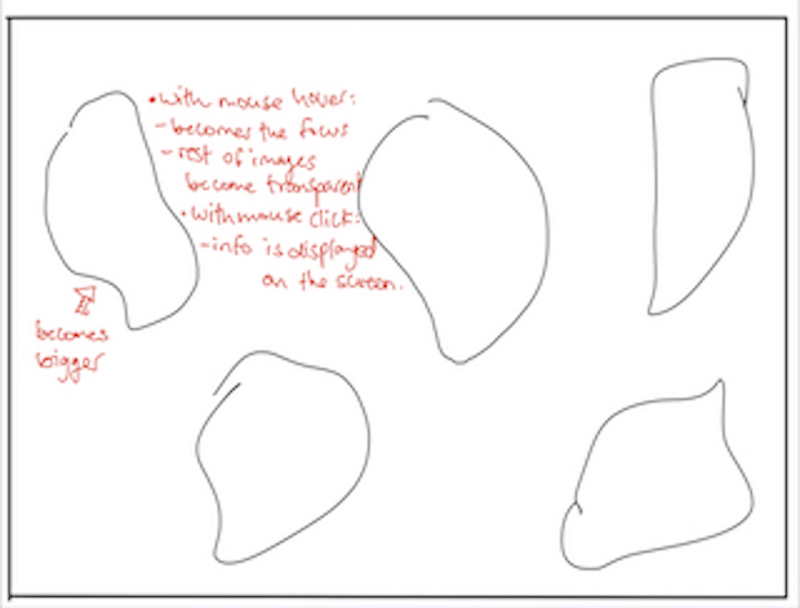 • with mouse hover:
- becomes the focus
- rest of images
become transparent
• with mouse click:
- info is displayed
on the screen.
becomes
bigger